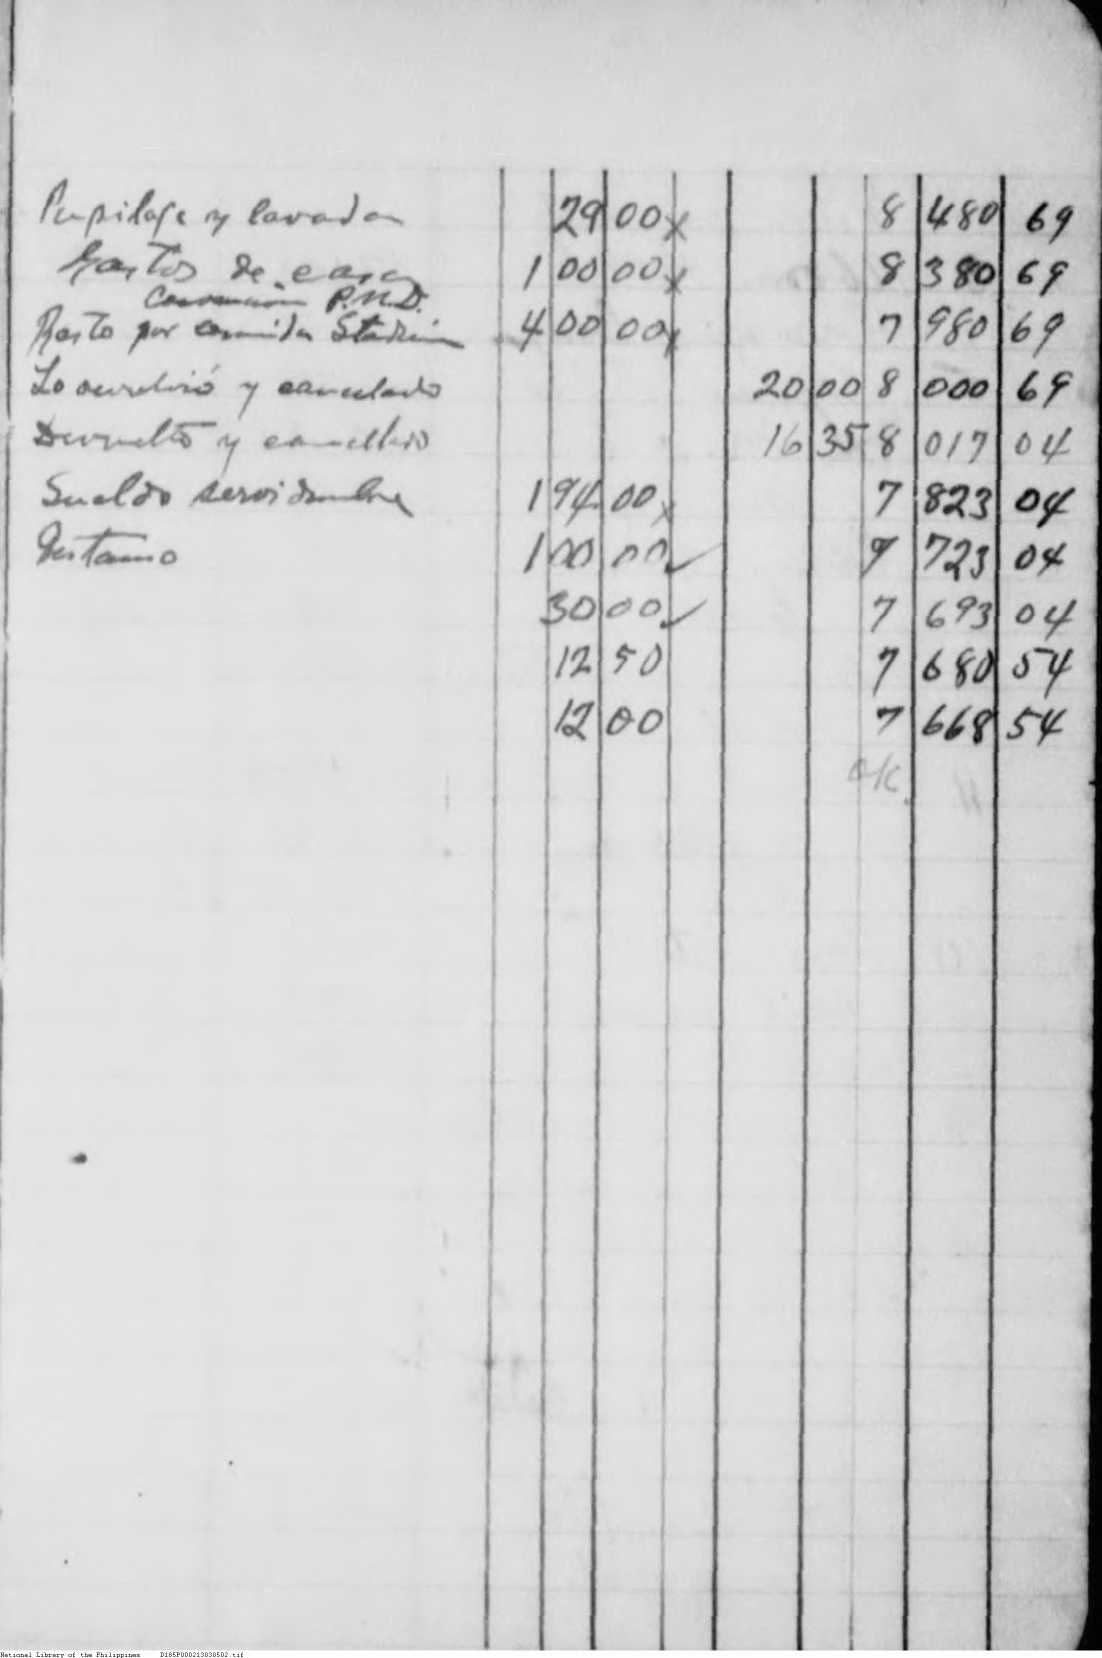 Pupilaje y lavado 29 00 x 8 480 69
Gastos de casa 1 00 00 x 8 380 69
Convencion P.N.D.
Resto por comida Stadium 4 00 00 x 7 980 69
Lo devolvió y cancelado 20 00 8 000 69
Devuelto y cancelado 16 35 8 017 04
Sueldo servidumbre 194 00 x 7 823 04
100 00 ✓ 7 723 04
30 00 ✓ 7 693 04
12 50 7 680 54
12 00 7 668 54
O/K.
National Library of the Philippines D185P000213030502.tif